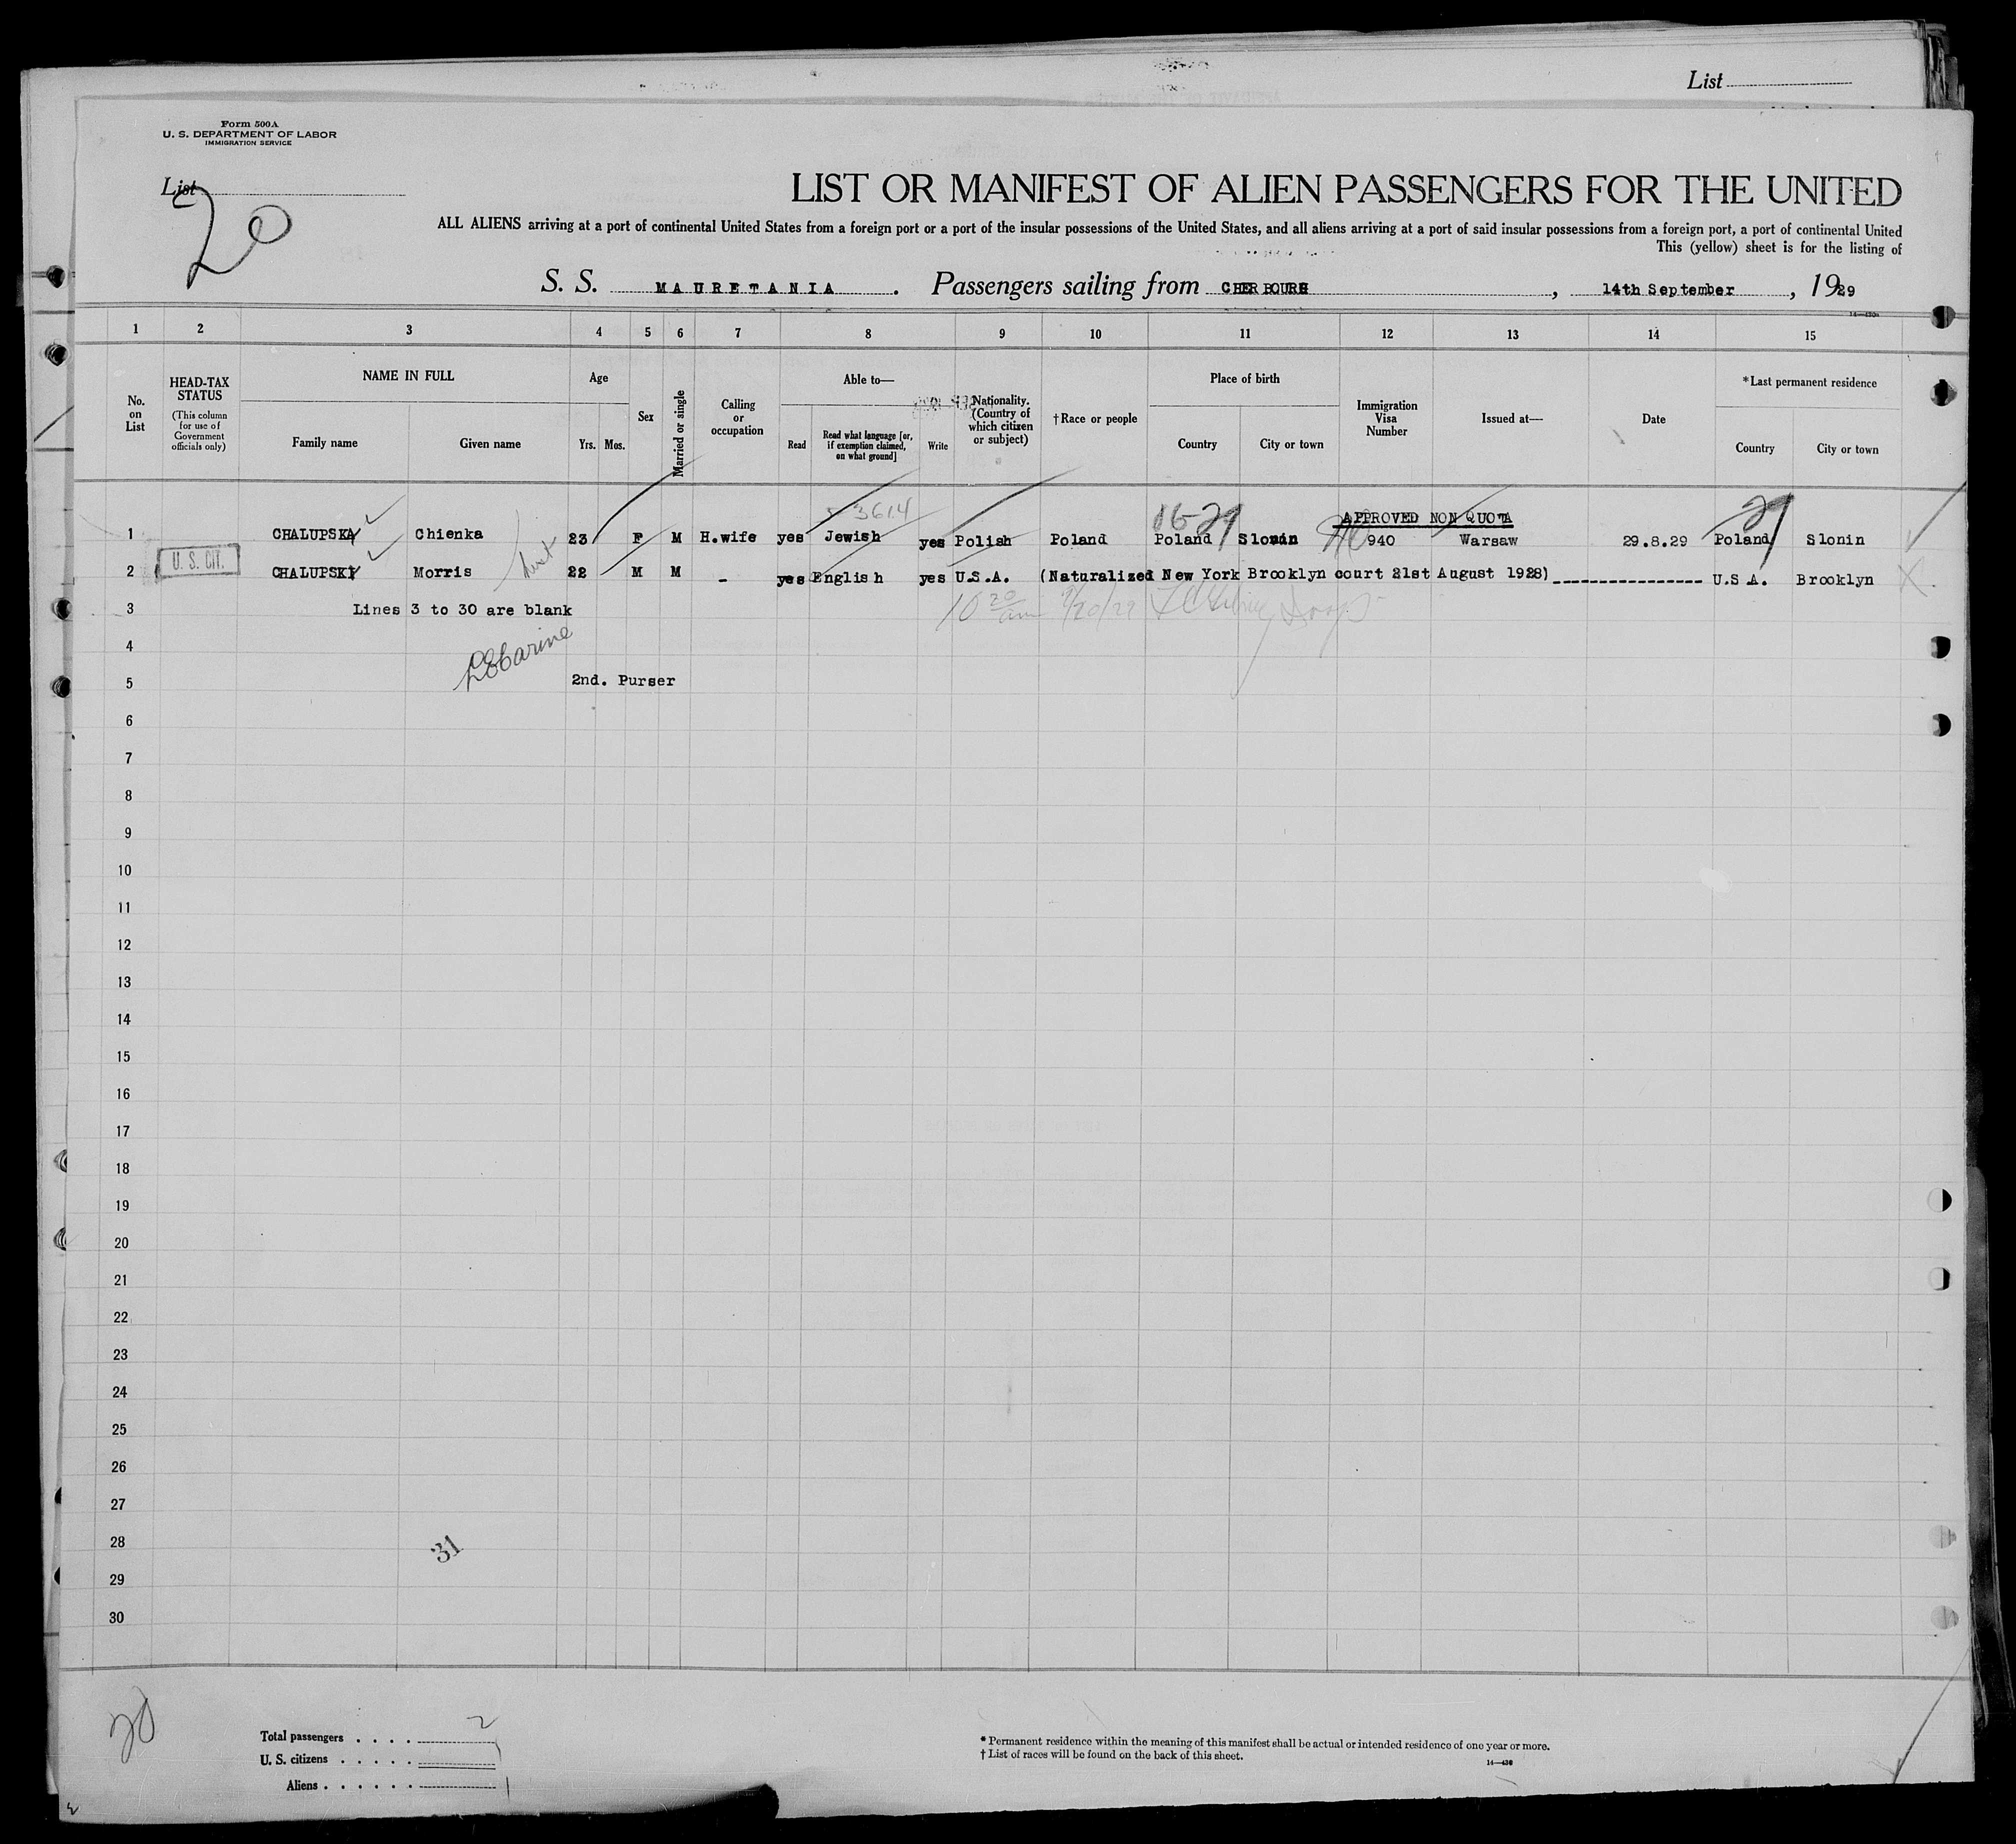 List
Form 500A
U. S. DEPARTMENT OF LABOR
IMMIGRATION SERVICE
List
20
LIST OR MANIFEST OF ALIEN PASSENGERS FOR THE UNITED
ALL ALIENS arriving at a port of continental United States from a foreign port or a port of the insular possessions of the United States, and all aliens arriving at a port of said insular possessions from a foreign port, a port of continental United
This (yellow) sheet is for the listing of
S. S. MAURETANIA . Passengers sailing from CHERBOURG , 14th September , 1929
1 2 3 4 5 6 7 8 9 10 11 12 13 14 15
No. on List
HEAD-TAX STATUS
(This column for use of Government officials only)
NAME IN FULL
Family name Given name
Age
Yrs. Mos.
Sex
Married or single
Calling or occupation
Able to—
Read
Read what language [or, if exemption claimed, on what ground]
Write
Nationality. (Country of which citizen or subject)
†Race or people
Place of birth
Country City or town
Immigration Visa Number
Issued at—
Date
*Last permanent residence
Country City or town
3614 16-29 APPROVED NON QUOTA 29
1 CHALUPSKA Chienka 23 F M H.wife yes Jewish yes Polish Poland Poland Slonin 940 Warsaw 29.8.29 Poland Slonin
U. S. CIT.
2 CHALUPSKI Morris 22 M M - yes English yes U.S.A. (Naturalized New York Brooklyn court 21st August 1928) U.S A. Brooklyn
3 Lines 3 to 30 are blank
10 20 am 9/20/29
4
5 2nd. Purser
6
7
8
9
10
11
12
13
14
15
16
17
18
19
20
21
22
23
24
25
26
27
28
31
29
30
20
Total passengers . . . . 2
U. S. citizens . . . . . 1
Aliens . . . . . . 1
* Permanent residence within the meaning of this manifest shall be actual or intended residence of one year or more.
† List of races will be found on the back of this sheet.
14—430